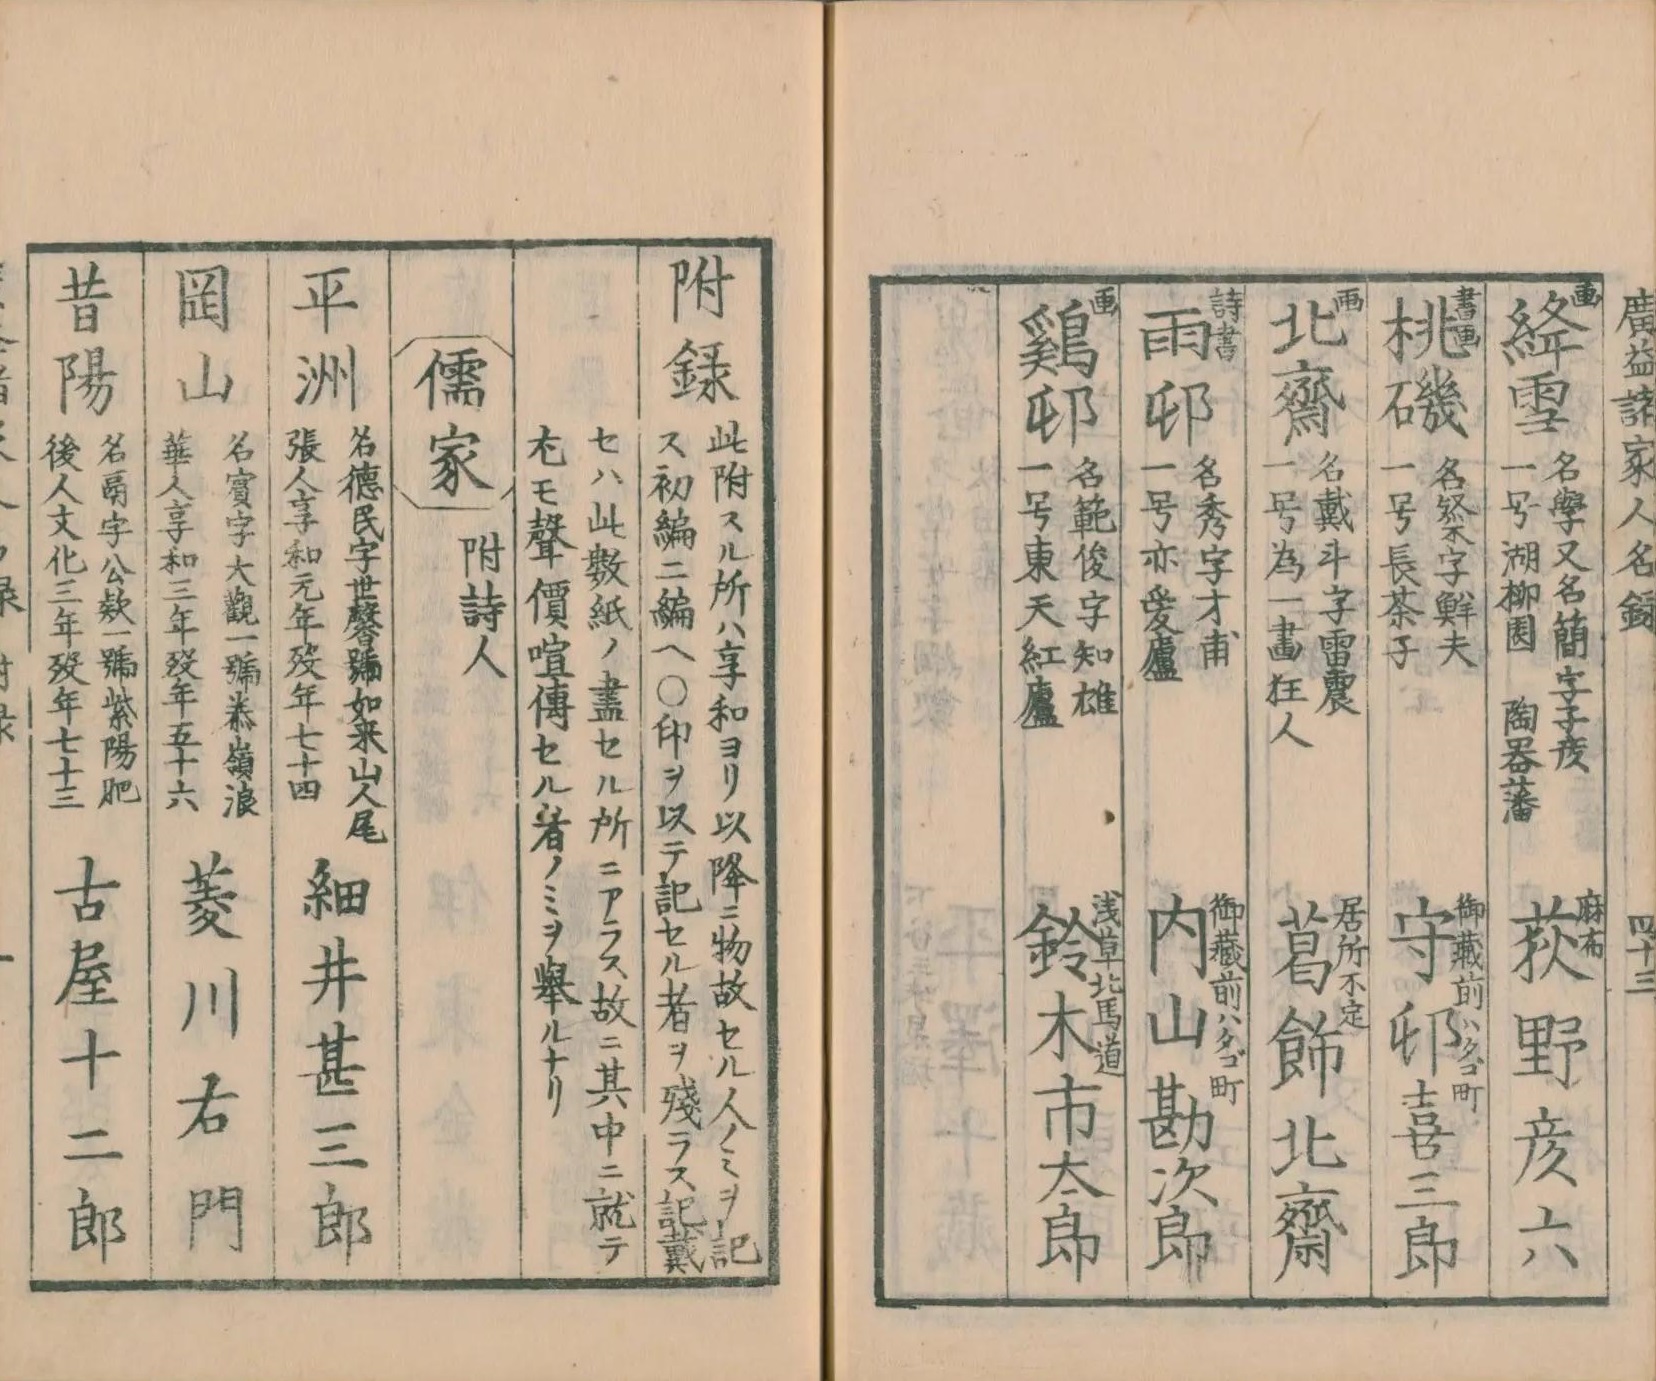 廣益諸家人名録
四十三
画
絳雪
名學又名簡字子彦
一号湖柳園 陶器藩
麻布
荻野彦六
書画
桃磯
名粲字鮮夫
一号長茶子
御蔵前ハタゴ町
守邨喜三郎
画
北齋
名戴斗字雷震
一号為一畫狂人
居所不定
葛飾北齋
詩書
雨邨
名秀字才甫
一号亦愛廬
御蔵前ハタゴ町
内山勘次郎
画
鷄邨
名範俊字知雄
一号東天紅廬
浅草北馬道
鈴木市太郎
附録
此附スル所ハ享和ヨリ以降ニ物故セル人ノミヲ記
ス初編二編ヘ〇印ヲ以テ記セル者ヲ殘ラス記戴
セハ此數紙ノ盡セル所ニアラス故ニ其中ニ就テ
尤モ聲價喧傳セル者ノミヲ舉ルナリ
儒家
附詩人
平洲
名德民字世馨號如来山人尾
張人享和元年歿年七十四
細井甚三郎
岡山
名賓字大觀一號恭嶺浪
華人享和三年歿年五十六
菱川右門
昔陽
名鬲字公款一號紫陽肥
後人文化三年歿年七十三
古屋十二郎